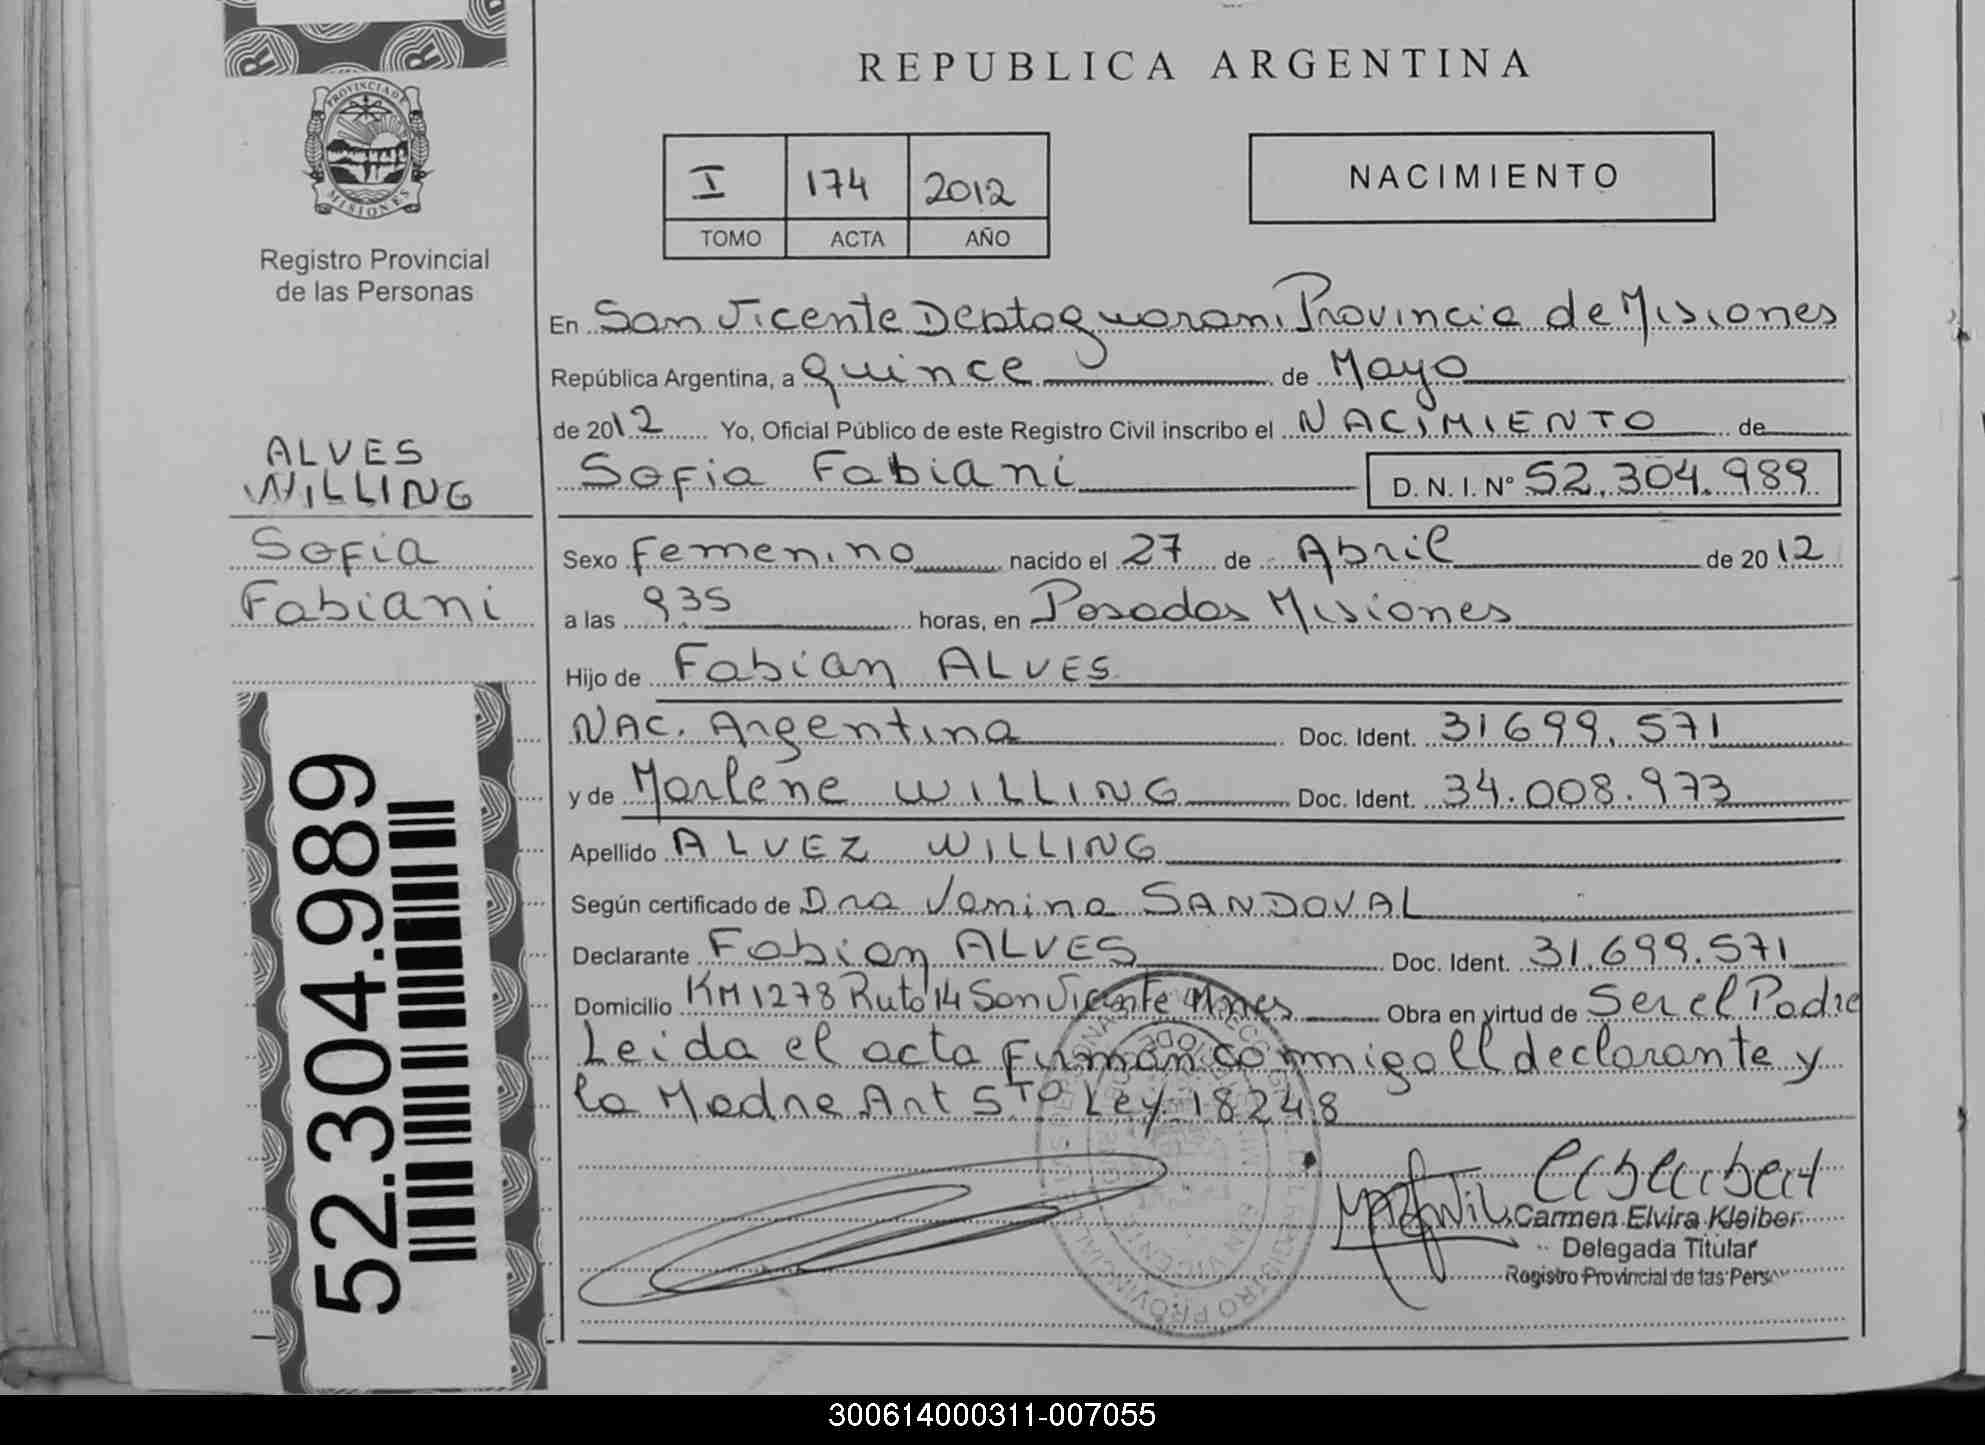 REPUBLICA ARGENTINA
PROVINCIA DE
MISIONES
Registro Provincial
de las Personas
I 174 2012
TOMO ACTA AÑO
NACIMIENTO
En San Vicente Depto guarani Provincia de Misiones
República Argentina, a quince de Mayo
de 2012 Yo, Oficial Público de este Registro Civil inscribo el NACIMIENTO de
Sofia Fabiani D.N.I. Nº 52.304.989
ALVES
WILLING
Sofia
Fabiani
Sexo Femenino nacido el 27 de Abril de 2012
a las 935 horas, en Posadas Misiones
Hijo de Fabian ALVES
NAC. Argentina Doc. Ident. 31699.571
y de Marlene WILLING Doc. Ident. 34.008.973
Apellido ALVEZ WILLING
Según certificado de Dra Vanina SANDOVAL
Declarante Fabian ALVES Doc. Ident. 31.699.571
Domicilio KM 1278 Ruta 14 San Vicente Mnes Obra en virtud de Ser el Padre
Leida el acta Firman conmigo El declarante y
la Madre Art 5to Ley 18248
52.304.989
Carmen Elvira Kleiber
Delegada Titular
Registro Provincial de las Pers
300614000311-007055